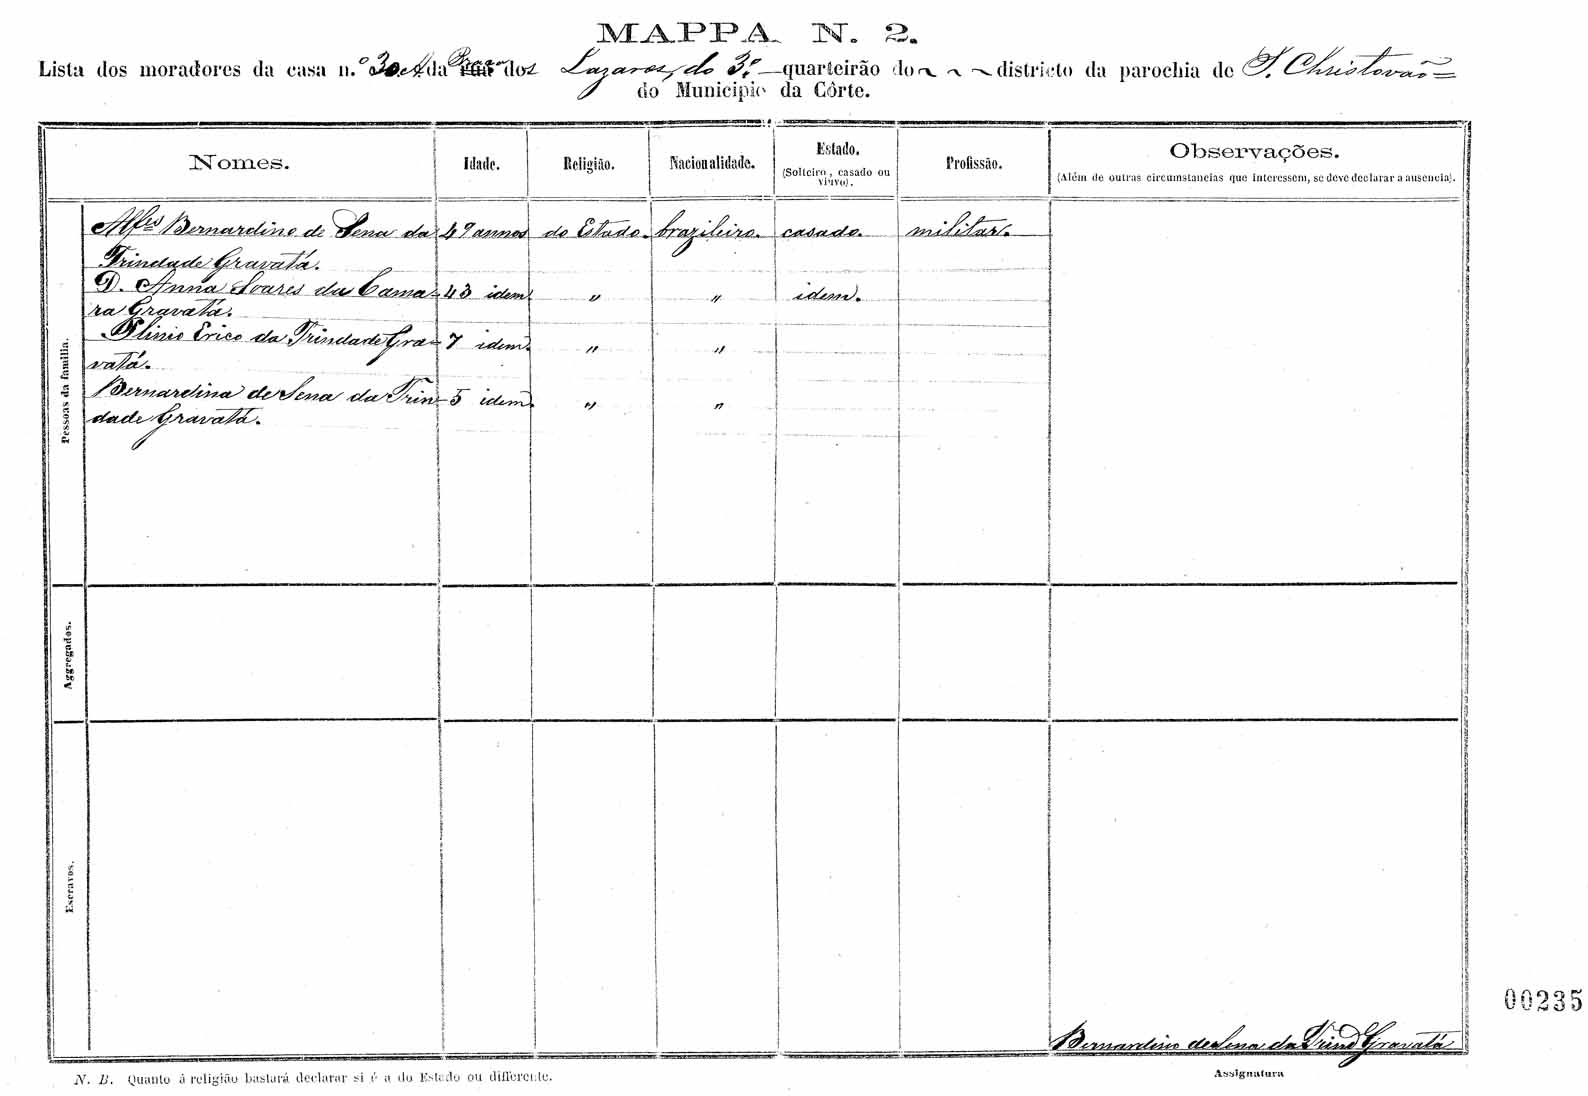 MAPPA N. 2.
Lista dos moradores da casa n.º 30 A da Praça dos Lazaros, do 3.º quarteirão do ~ ~ ~ districto da parochia de S. Christovão =
do Municipio da Côrte.
Nomes. Idade. Religião. Nacionalidade. Estado. Profissão. Observações.
(Solteiro, casado ou viuvo). (Além de outras circumstancias que interessem, se deve declarar a ausencia).
Pessoas da familia.
Alfes Bernardino de Sena da 49 annos do Estado. brazileiro. casado. militar.
Trindade Gravatá.
D. Anna Soares da Cama- 43 idem. " " idem.
ra Gravatá.
Plinio Erico da Trindade Gra- 7 idem. " "
vatá.
Bernardina de Sena da Trin- 5 idem. " "
dade Gravatá.
Aggregados.
Escravos.
00235
Bernardino de Sena da Trind Gravatá
Assignatura
N. B. Quanto á religião bastará declarar si é a do Estado ou differente.